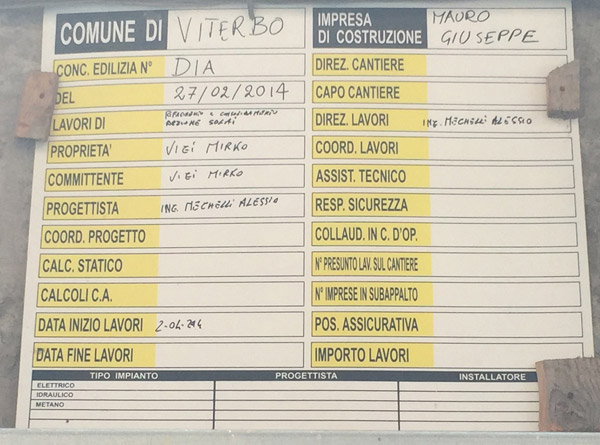 COMUNE DI VITERBO
IMPRESA
DI COSTRUZIONE
MAURO
GIUSEPPE
CONC. EDILIZIA N° DIA
DEL 27/02/2014
LAVORI DI
PROPRIETA' VIZI MIRKO
COMMITTENTE VIZI MIRKO
PROGETTISTA ING. MECHELLI ALESSIO
COORD. PROGETTO
CALC. STATICO
CALCOLI C.A.
DATA INIZIO LAVORI
DATA FINE LAVORI
DIREZ. CANTIERE
CAPO CANTIERE
DIREZ. LAVORI ING. MECHELLI ALESSIO
COORD. LAVORI
ASSIST. TECNICO
RESP. SICUREZZA
COLLAUD. IN C. D'OP.
N° PRESUNTO LAV. SUL CANTIERE
N° IMPRESE IN SUBAPPALTO
POS. ASSICURATIVA
IMPORTO LAVORI
TIPO IMPIANTO PROGETTISTA INSTALLATORE
ELETTRICO
IDRAULICO
METANO